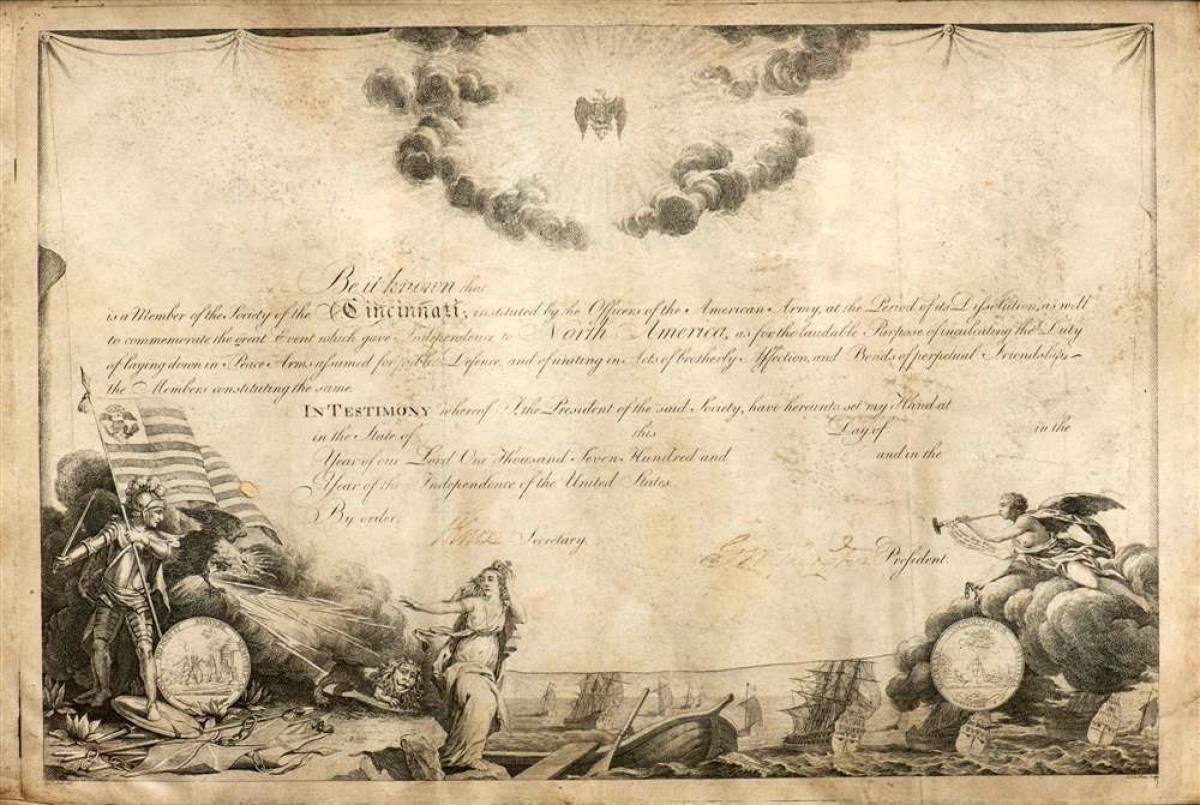 Be it known that
is a Member of the Society of the Cincinnati; instituted by the Officers of the American Army, at the Period of its Dissolution, as well
to commemorate the great Event which gave Independence to North America, as for the laudable Purpose of inculcating the Duty
of laying down in Peace Arms assumed for public Defence, and of uniting in Acts of brotherly Affection, and Bonds of perpetual Friendship
the Members constituting the same.
IN TESTIMONY whereof I, the President of the said Society, have hereunto set my Hand at
in the State of this Day of in the
Year of our Lord One Thousand Seven Hundred and and in the
Year of the Independence of the United States.
By order,
Secretary.
President.